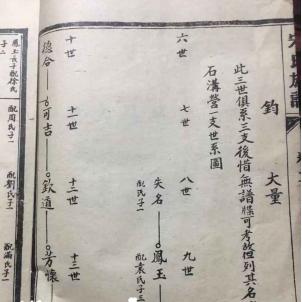 鈞　大量
此三世俱系三支後惜無譜牒可考故但列其名
石溝營一支世系圖
六世　七世　八世　九世
失名　鳳玉
配氏子一　配袁氏子三
十世　十一世　十二世　十三世
總合　可吉　欽道　芳懷
配徐氏
子二
配周氏子一
配劉氏子一
配滿氏子一